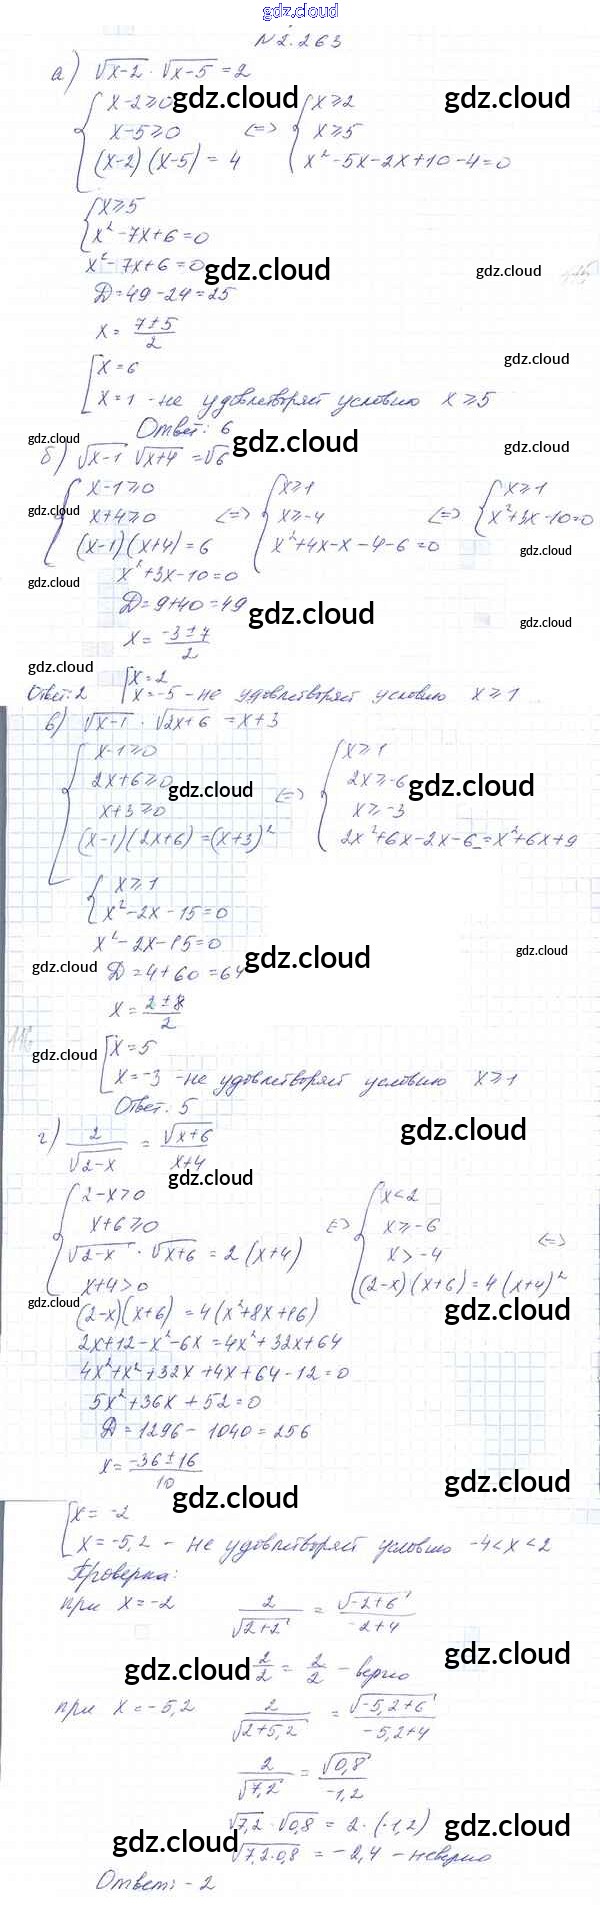 gdz.cloud
N 2.263
а) √x-2 · √x-5 = 2
{ x-2≥0 gdz.cloud { x≥2 gdz.cloud
x-5≥0 <=> x≥5
(x-2)(x-5) = 4 x²-5x-2x+10-4=0
{ x≥5
x²-7x+6=0
x²-7x+6=0 gdz.cloud gdz.cloud
D=49-24=25
x= 7±5/2
[ x=6 gdz.cloud
x=1 -не удовлетворяет условию x≥5
Ответ: 6
gdz.cloud gdz.cloud
б) √x-1 √x+4 = √6
{ x-1≥0 { x≥1 { x≥1
gdz.cloud x+4≥0 <=> x≥-4 <=> x²+3x-10=0
(x-1)(x+4)=6 x²+4x-x-4-6=0 gdz.cloud
gdz.cloud x²+3x-10=0
D=9+40=49 gdz.cloud gdz.cloud
x= -3±7/2
gdz.cloud [ x=2
Ответ: 2 x=-5 -не удовлетворяет условию x≥1
в) √x-1 · √2x+6 = x+3
{ x-1≥0 { x≥1
2x+6≥0 gdz.cloud <=> 2x≥-6 gdz.cloud
x+3≥0 x≥-3
(x-1)(2x+6)=(x+3)² 2x²+6x-2x-6=x²+6x+9
{ x≥1
x²-2x-15=0
x²-2x-15=0 gdz.cloud
gdz.cloud D=4+60=64 gdz.cloud
x= 2±8/2
gdz.cloud [ x=5
x=-3 -не удовлетворяет условию x≥1
Ответ: 5
г) 2/√2-x = √x+6/x+4 gdz.cloud
gdz.cloud
{ 2-x>0 { x<2
x+6≥0 <=> x≥-6 <=>
√2-x · √x+6 = 2(x+4) x>-4
x+4>0 (2-x)(x+6)=4(x+4)²
gdz.cloud (2-x)(x+6)=4(x²+8x+16) gdz.cloud
2x+12-x²-6x=4x²+32x+64
4x²+x²+32x+4x+64-12=0
5x²+36x+52=0
D=1296-1040=256
x= -36±16/10 gdz.cloud
gdz.cloud
[ x=-2
x=-5,2 - не удовлетворяет условию -4<x<2
Проверка:
при x=-2 2/√2+2 = √-2+6/-2+4
gdz.cloud 2/2 = 2/2 - верно gdz.cloud
при x=-5,2 2/√2+5,2 = √-5,2+6/-5,2+4
2/√7,2 = √0,8/-1,2
√7,2 · √0,8 = 2·(-1,2) gdz.cloud
gdz.cloud √7,2·0,8 = -2,4 - неверно
Ответ: -2